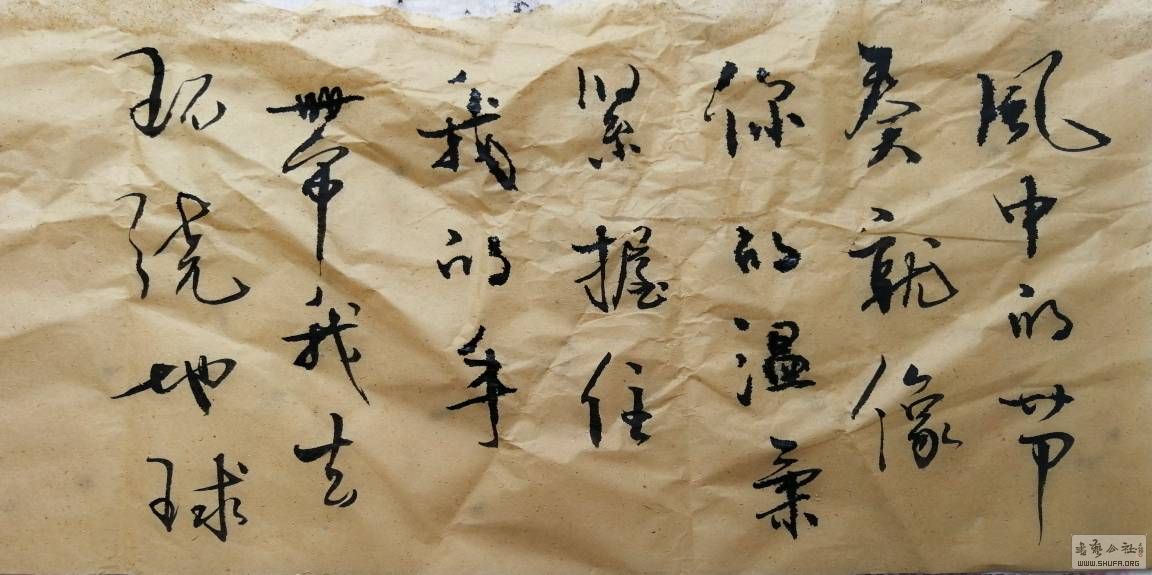 風中的节
奏就像
你的温柔
紧握住
我的手
带我去
环绕地球
書藝公社
WWW.SHUFA.ORG